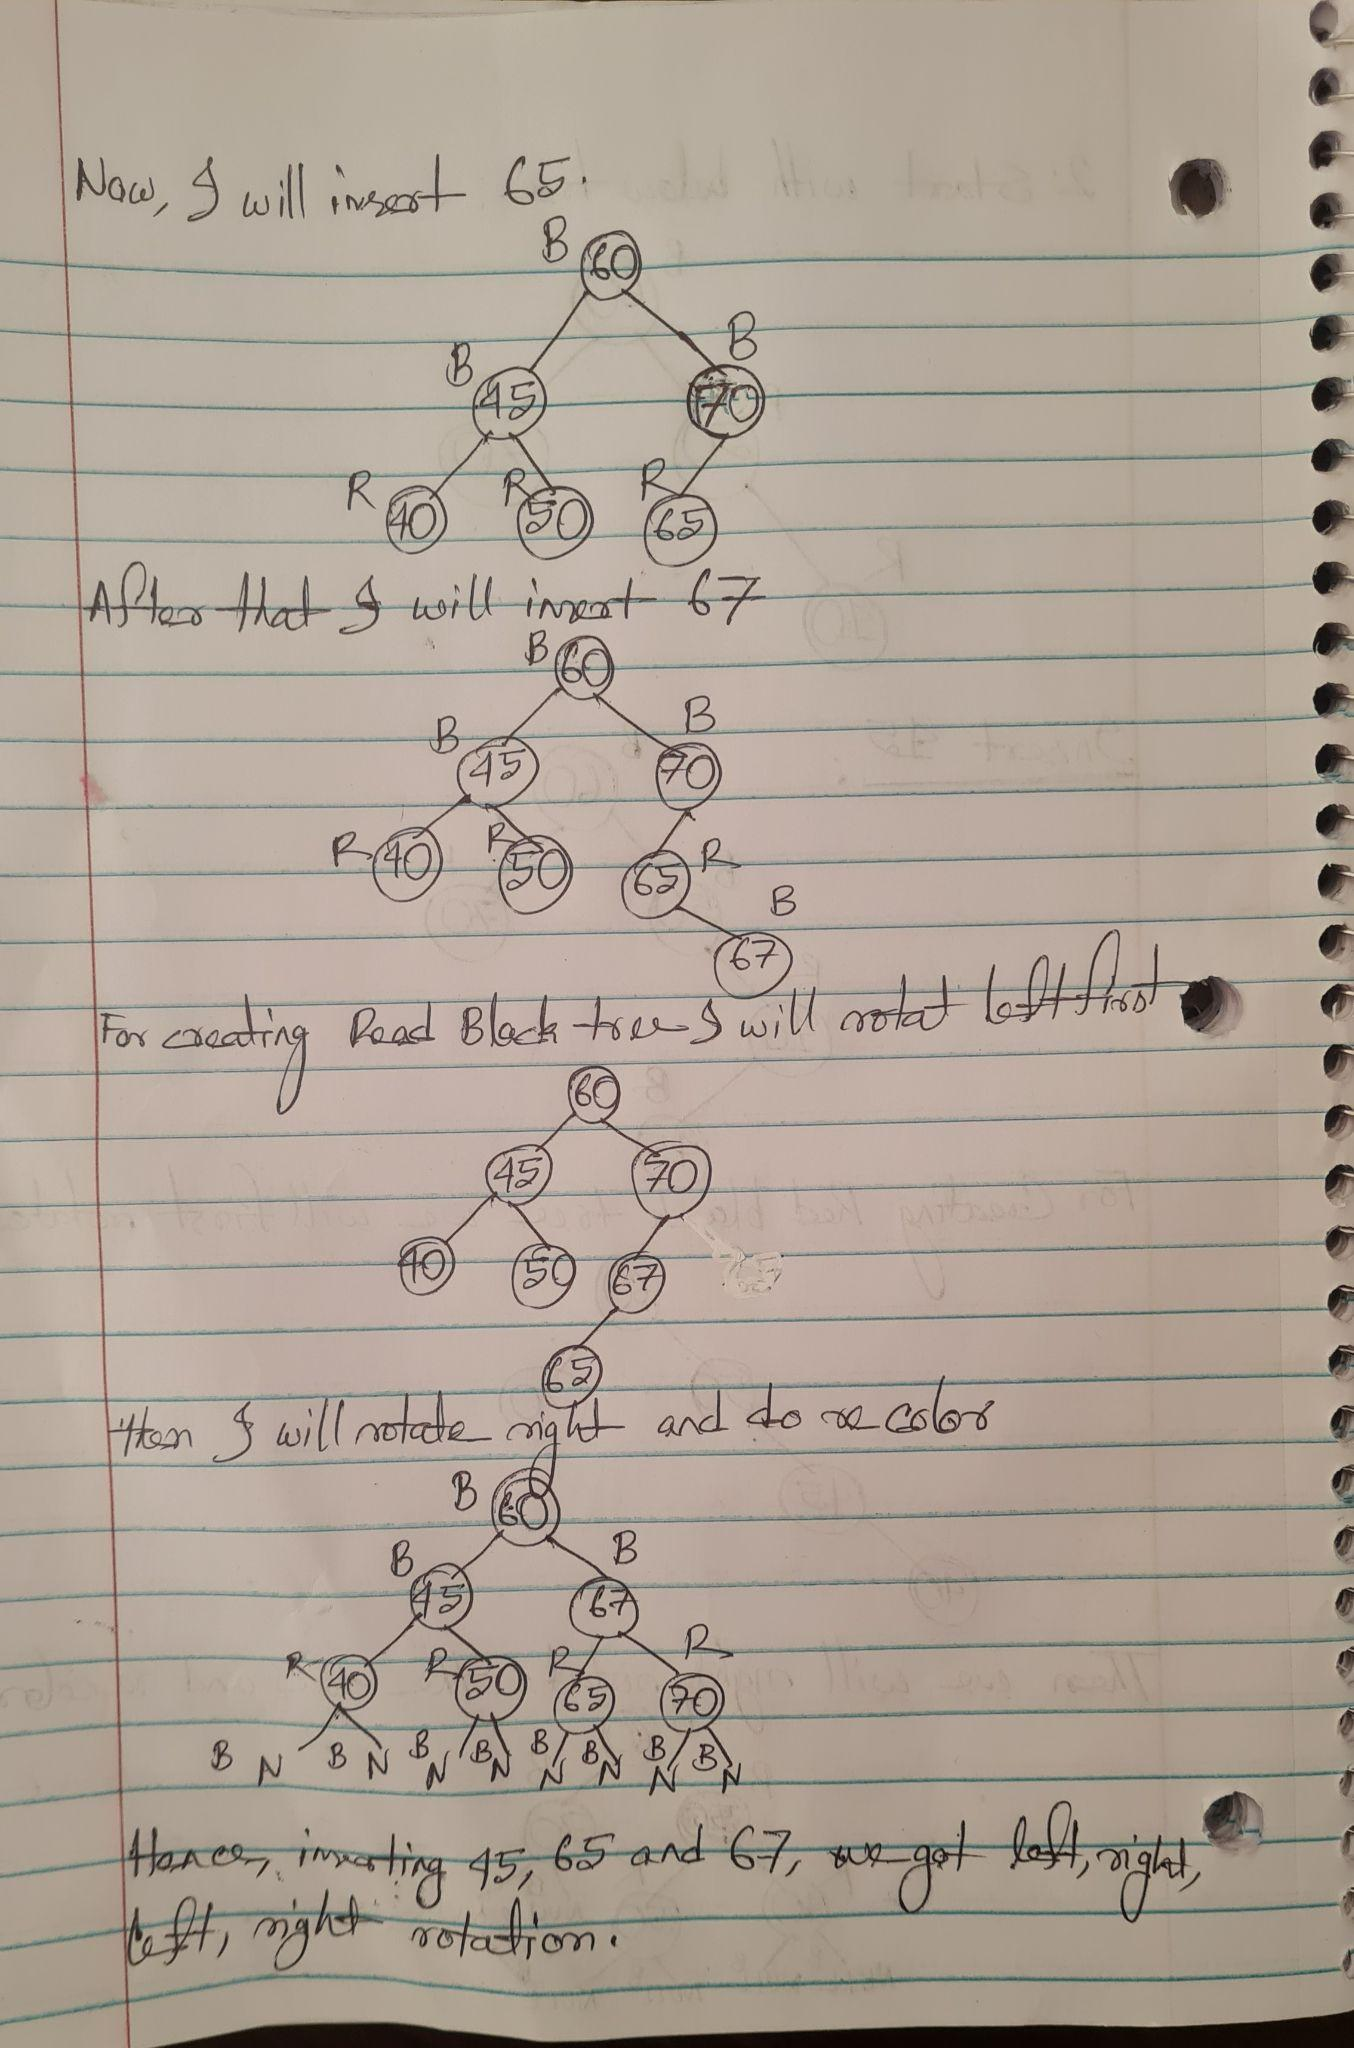 Now, I will insert 65.
B 60
B 45 B 70
R 40 R 50 R 65
After that I will insert 67
B 60
B 45 B 70
R 40 R 50 65 R
B
67
For creating Read Black tree I will rotat left first
60
45 70
40 50 67
65
then I will rotate right and do re color
B 60
B 45 B 67
R 40 R 50 R 65 R 70
B N B N B N B N B N B N B N B N
Hence, inserting 45, 65 and 67, we got left, right,
left, right rotation.